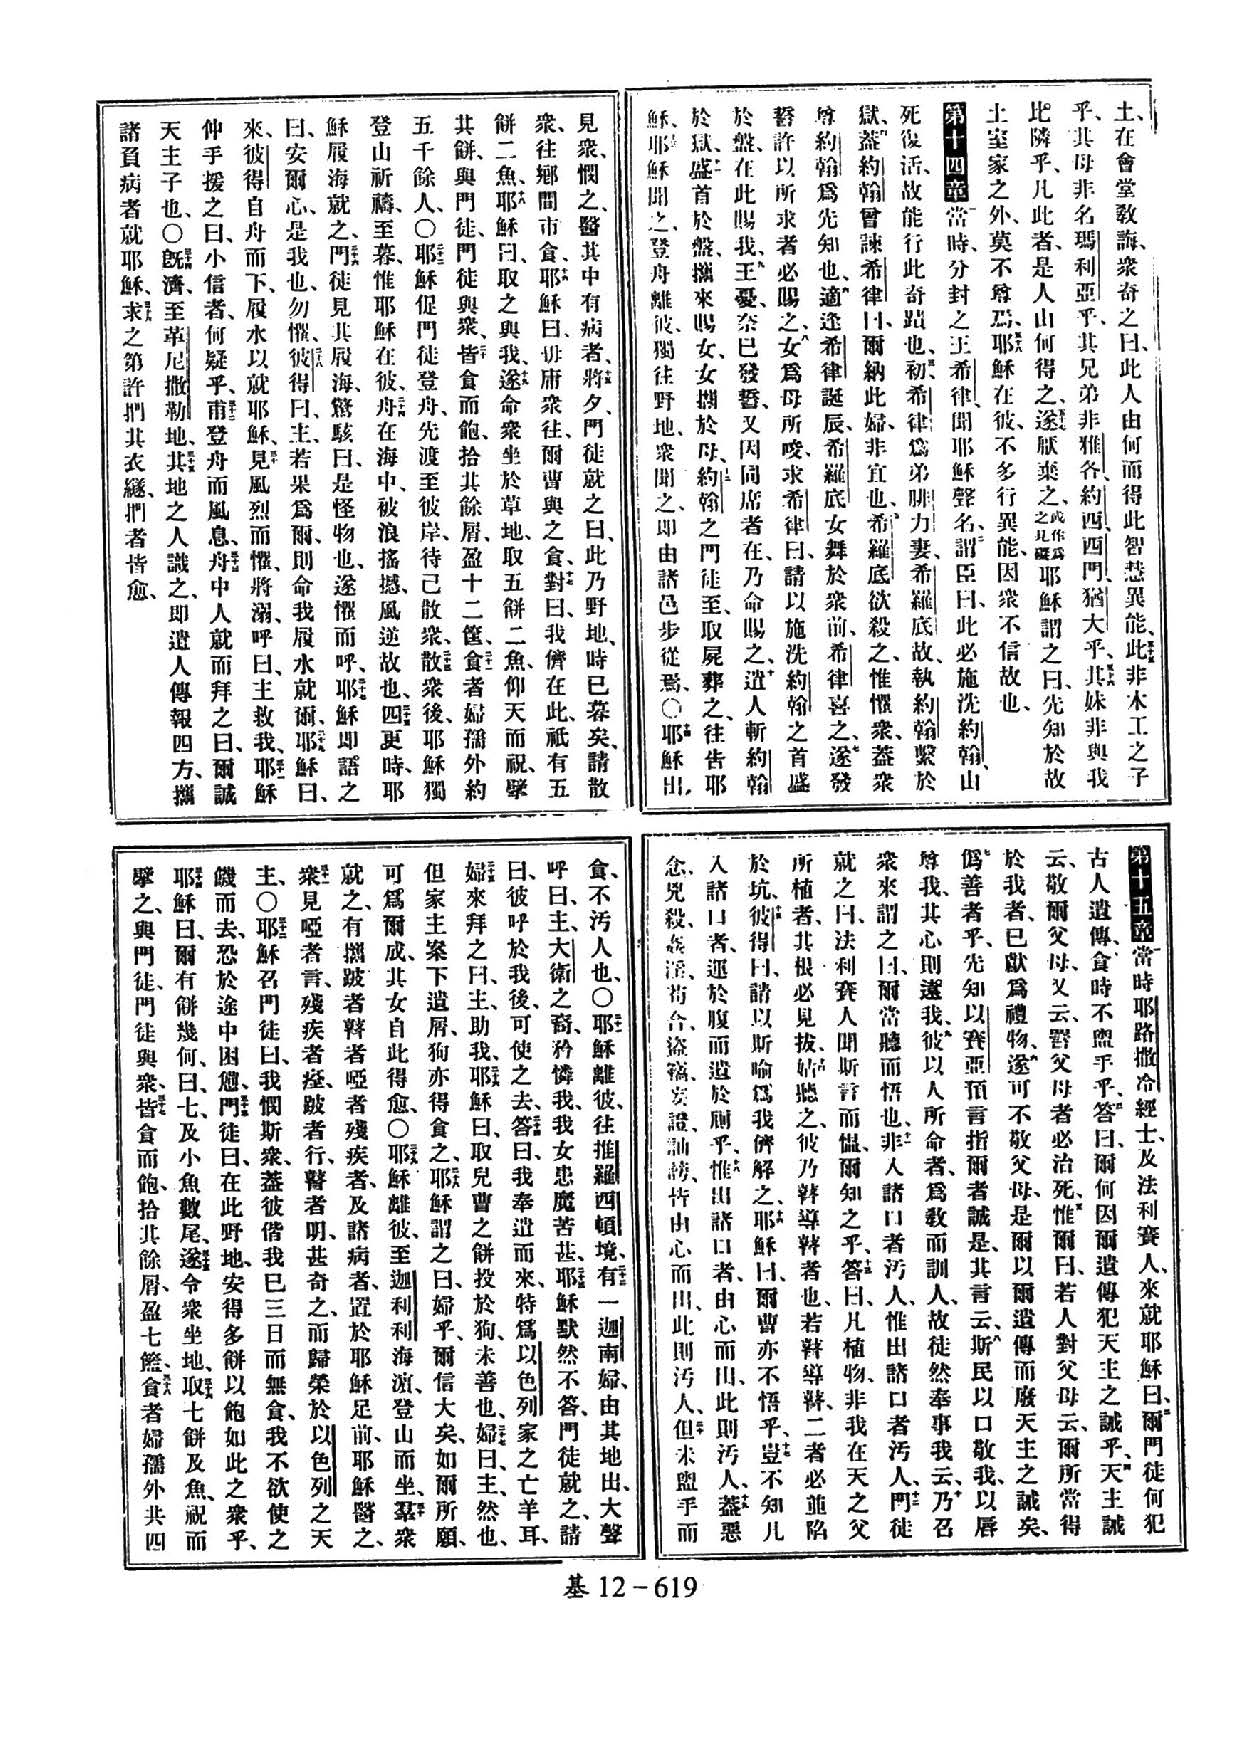 土、在會堂敎誨、衆奇之曰、此人由何而得此智慧異能、此非木工之子
乎、其母非名瑪利亞乎、其兄弟非雅各、約西、西門、猶大乎、其妹非與我
比隣乎、凡此者、是人由何得之、遂厭棄之、或作爲之見礙耶穌謂之曰、先知於故
土室家之外、莫不尊焉、耶穌在彼不多行異能、因衆不信故也、
第十四章當時、分封之王希律、聞耶穌聲名、謂臣曰、此必施洗約翰、由
死復活、故能行此奇蹟也、初希律爲弟腓力妻希羅底故、執約翰繫於
獄、蓋約翰曾諫希律曰、爾納此婦、非宜也、希羅底欲殺之、惟懼衆、蓋衆
尊約翰爲先知也、適逢希律誕辰、希羅底女舞於衆前、希律喜之、遂發
誓許以所求者必賜之、女爲母所唆、求希律曰、請以施洗約翰之首盛
於盤、在此賜我、王憂、奈已發誓、又因同席者在、乃命賜之、遣人斬約翰
於獄、盛首於盤、攜來賜女、女攜於母、約翰之門徒至、取屍葬之、往告耶
穌、耶穌聞之、登舟離彼、獨往野地、衆聞之、即由諸邑步從焉、〇耶穌出、
見衆、憫之、醫其中有病者、將夕、門徒就之曰、此乃野地、時已暮矣、請散
衆、往鄕間市食、耶穌曰、毋庸衆往、爾曹與之食、對曰、我儕在此、祇有五
餅二魚、耶穌曰、取之與我、遂命衆坐於草地、取五餅二魚、仰天而祝、擘
其餅、與門徒、門徒與衆、皆食而飽、拾其餘屑、盈十二筐、食者婦孺外約
五千餘人、〇耶穌促門徒登舟、先渡至彼岸、待己散衆、散衆後、耶穌獨
登山祈禱、至暮、惟耶穌在彼、舟在海中、被浪搖撼、風逆故也、四更時、耶
穌履海就之、門徒見其履海、驚駭曰、是怪物也、遂懼而呼、耶穌即語之
曰、安爾心、是我也、勿懼、彼得曰、主、若果爲爾、則命我履水就爾、耶穌曰、
來、彼得自舟而下、履水以就耶穌、見風烈而懼、將溺、呼曰、主救我、耶穌
伸手援之曰、小信者、何疑乎、甫登舟而風息、舟中人就而拜之曰、爾誠
天主子也、〇旣濟、至革尼撒勒地、其地之人識之、即遣人傳報四方、攜
諸負病者就耶穌、求之第許捫其衣繸、捫者皆愈、
第十五章當時耶路撒冷經士、及法利賽人、來就耶穌曰、爾門徒何犯
古人遺傳、食時不盥手乎、答曰、爾何因爾遺傳犯天主之誡乎、天主誡
云、敬爾父母、又云、詈父母者必治死、惟爾曰、若人對父母云、爾所當得
於我者、已獻爲禮物、遂可不敬父母、是爾以爾遺傳而廢天主之誡矣、
僞善者乎、先知以賽亞預言指爾者誠是、其言云、斯民以口敬我、以唇
尊我、其心則遠我、彼以人所命者、爲敎而訓人、故徒然奉事我云、乃召
衆來謂之曰、爾當聽而悟也、非入諸口者汚人、惟出諸口者汚人、門徒
就之曰、法利賽人聞斯言而慍、爾知之乎、答曰、凡植物、非我在天之父
所植者、其根必見拔、姑聽之、彼乃瞽導瞽者也、若瞽導瞽、二者必並陷
於坑、彼得曰、請以斯喻爲我儕解之、耶穌曰、爾曹亦不悟乎、豈不知凡
入諸口者、運於腹而遺於厠乎、惟出諸口者、由心而出、此則汚人、蓋惡
念、兇殺、姦淫、苟合、盜竊、妄證、訕謗、皆由心而出、此則汚人、但未盥手而
食、不汚人也、〇耶穌離彼、往推羅西頓境、有一迦南婦、由其地出、大聲
呼曰、主、大衛之裔、矜憐我、我女患魔苦甚、耶穌默然不答、門徒就之、請
曰、彼呼於我後、可使之去、答曰、我奉遣而來、特爲以色列家之亡羊耳、
婦來拜之曰、主、助我、耶穌曰、取兒曹之餅投於狗、未善也、婦曰、主、然也、
但家主案下遺屑、狗亦得食之、耶穌謂之曰、婦乎、爾信大矣、如爾所願、
可爲爾成、其女自此得愈、〇耶穌離彼、至迦利利海濱、登山而坐、羣衆
就之、有攜跛者瞽者啞者殘疾者、及諸病者、置於耶穌足前、耶穌醫之、
衆見啞者言、殘疾者痊、跛者行、瞽者明、甚奇之、而歸榮於以色列之天
主、〇耶穌召門徒曰、我憫斯衆、蓋彼偕我已三日而無食、我不欲使之
饑而去、恐於途中困憊、門徒曰、在此野地、安得多餅以飽如此之衆乎、
耶穌曰、爾有餅幾何、曰、七、及小魚數尾、遂令衆坐地、取七餅及魚、祝而
擘之、與門徒、門徒與衆、皆食而飽、拾其餘屑、盈七籃、食者婦孺外共四
基 12－619